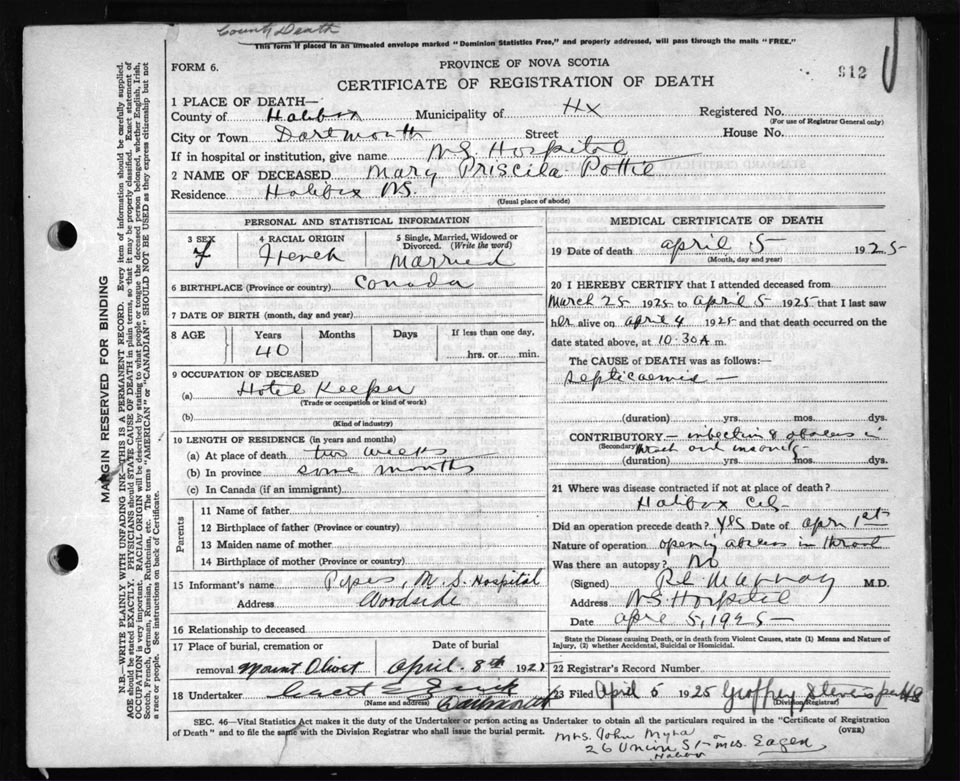 County Death
This form if placed in an unsealed envelope marked "Dominion Statistics Free," and properly addressed, will pass through the mails "FREE."
FORM 6.
PROVINCE OF NOVA SCOTIA
812
CERTIFICATE OF REGISTRATION OF DEATH
1 PLACE OF DEATH—
County of Halifax Municipality of Hx Registered No.
(For use of Registrar General only)
City or Town Dartmouth Street House No.
If in hospital or institution, give name N.S. Hospital
2 NAME OF DECEASED Mary Priscila Pottie
Residence Halifax N.S.
(Usual place of abode)
PERSONAL AND STATISTICAL INFORMATION
3 SEX F
4 RACIAL ORIGIN French
5 Single, Married, Widowed or Divorced. (Write the word) Married
6 BIRTHPLACE (Province or country) Canada
7 DATE OF BIRTH (month, day and year)
8 AGE Years Months Days If less than one day,
40 hrs. or min.
9 OCCUPATION OF DECEASED
(a) Hotel Keeper
(Trade or occupation or kind of work)
(b)
(Kind of industry)
10 LENGTH OF RESIDENCE (in years and months)
(a) At place of death two weeks
(b) In province some months
(c) In Canada (if an immigrant)
Parents
11 Name of father
12 Birthplace of father (Province or country)
13 Maiden name of mother
14 Birthplace of mother (Province or country)
15 Informant's name Papers, N.S. Hospital
Address Woodside
16 Relationship to deceased
17 Place of burial, cremation or Date of burial
removal Mount Olivet April 8th 1925
18 Undertaker
(Name and address) Dartmouth
MEDICAL CERTIFICATE OF DEATH
19 Date of death April 5 1925
(Month, day and year)
20 I HEREBY CERTIFY that I attended deceased from
March 25 1925 to April 5 1925 that I last saw
her alive on April 4 1925 and that death occurred on the
date stated above, at 10:30 A m.
The CAUSE of DEATH was as follows:
Septicaemia —
(duration) yrs. mos. dys.
CONTRIBUTORY — infection & abscess in
(Secondary) throat and insanity
(duration) yrs. mos. dys.
21 Where was disease contracted if not at place of death?
Halifax
Did an operation precede death? Yes Date of Apr 1st
Nature of operation opening abscess in throat
Was there an autopsy? No
(Signed) M.D.
Address N.S. Hospital
Date April 5, 1925
State the Disease causing Death, or in death from Violent Causes, state (1) Means and Nature of
Injury, (2) whether Accidental, Suicidal or Homicidal.
22 Registrar's Record Number
23 Filed April 5 1925 Geoffrey Stevens
(Division Registrar)
SEC. 46—Vital Statistics Act makes it the duty of the Undertaker or person acting as Undertaker to obtain all the particulars required in the "Certificate of Registration
of Death" and to file the same with the Division Registrar who shall issue the burial permit.
(OVER)
Mrs. John Myra
26 Union St Mrs. Eagen
Halifax
MARGIN RESERVED FOR BINDING
N.B.—WRITE PLAINLY WITH UNFADING INK—THIS IS A PERMANENT RECORD. Every item of information should be carefully supplied.
AGE should be stated EXACTLY. PHYSICIANS should STATE CAUSE OF DEATH in plain terms, so that it may be properly classified. Exact statement of
OCCUPATION is very important. RACIAL ORIGIN will be described by stating to what people or tongue the deceased person belonged, whether English, Irish,
Scotch, French, German, Russian, Ruthenian, etc. The terms "AMERICAN" or "CANADIAN" SHOULD NOT BE USED as they express citizenship but not
a race or people. See instructions on back of Certificate.